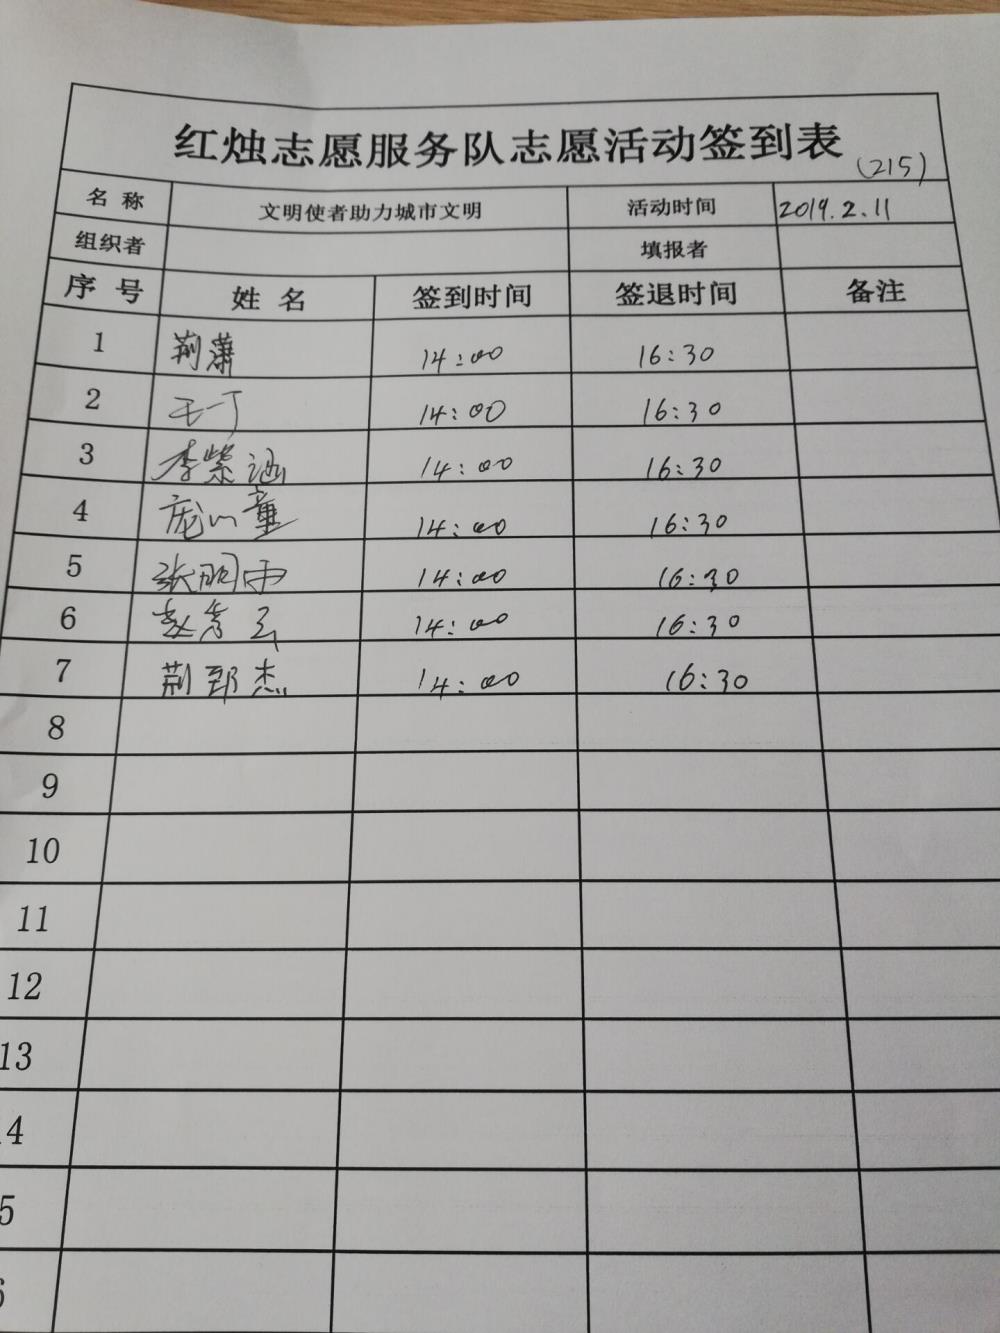 红烛志愿服务队志愿活动签到表
(215)
名 称 文明使者助力城市文明 活动时间 2019.2.11
组织者 填报者
序 号 姓 名 签到时间 签退时间 备注
1 荆潇 14:00 16:30
2 王一丁 14:00 16:30
3 李紫涵 14:00 16:30
4 庞一童 14:00 16:30
5 张明雨 14:00 16:30
6 赵 14:00 16:30
7 荆郅杰 14:00 16:30
8
9
10
11
12
13
4
5
6